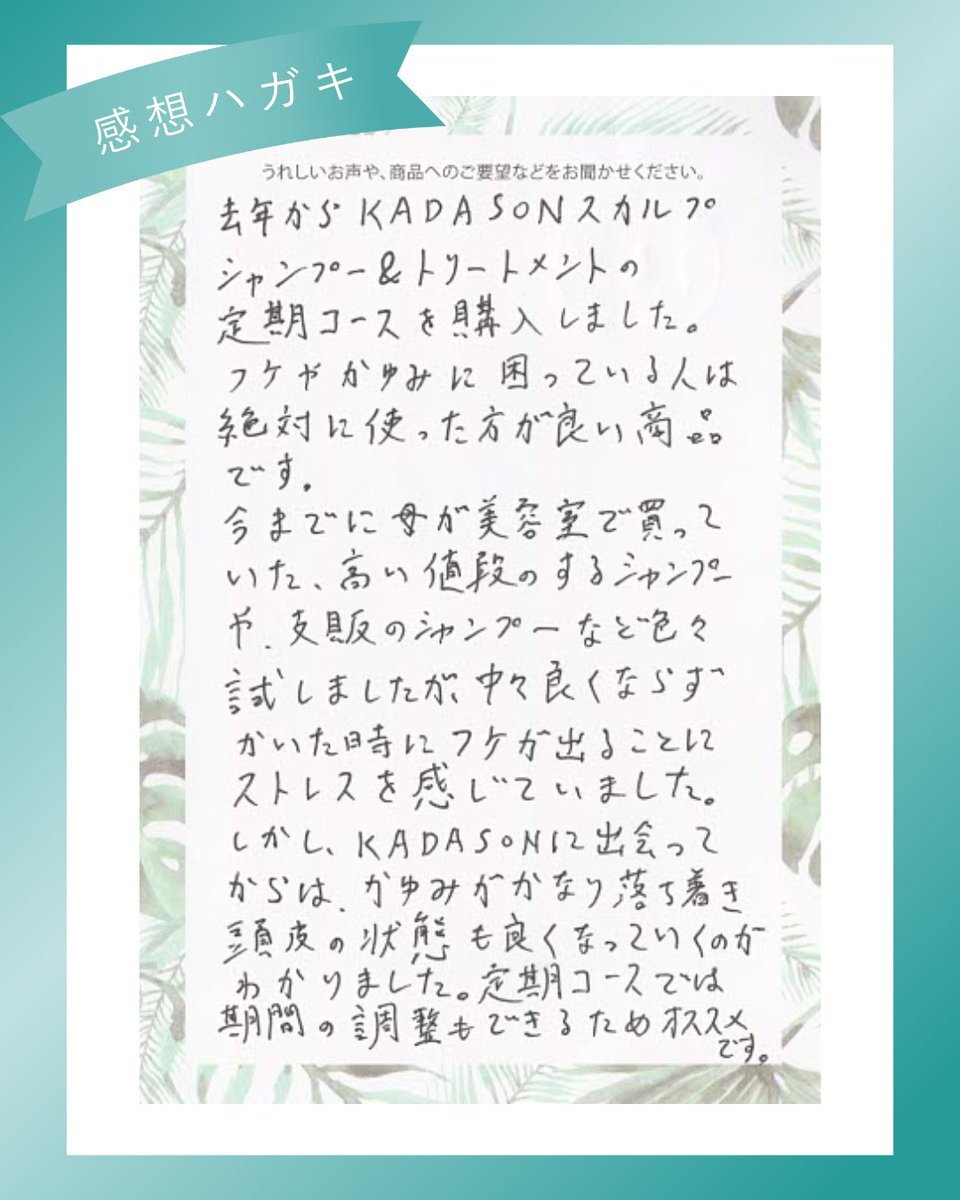 感想ハガキ
うれしいお声や、商品へのご要望などをお聞かせください。
去年からKADASONスカルプ
シャンプー&トリートメントの
定期コースを購入しました。
フケやかゆみに困っている人は
絶対に使った方が良い商品
です。
今までに母が美容室で買って
いた、高い値段のするシャンプー
や、支販のシャンプーなど色々
試しましたが、中々良くならず
かいた時にフケが出ることに
ストレスを感じていました。
しかし、KADASONに出会って
からは、かゆみがかなり落ち着き
頭皮の状態も良くなっていくのが
わかりました。定期コースでは
期間の調整もできるためオススメ
です。